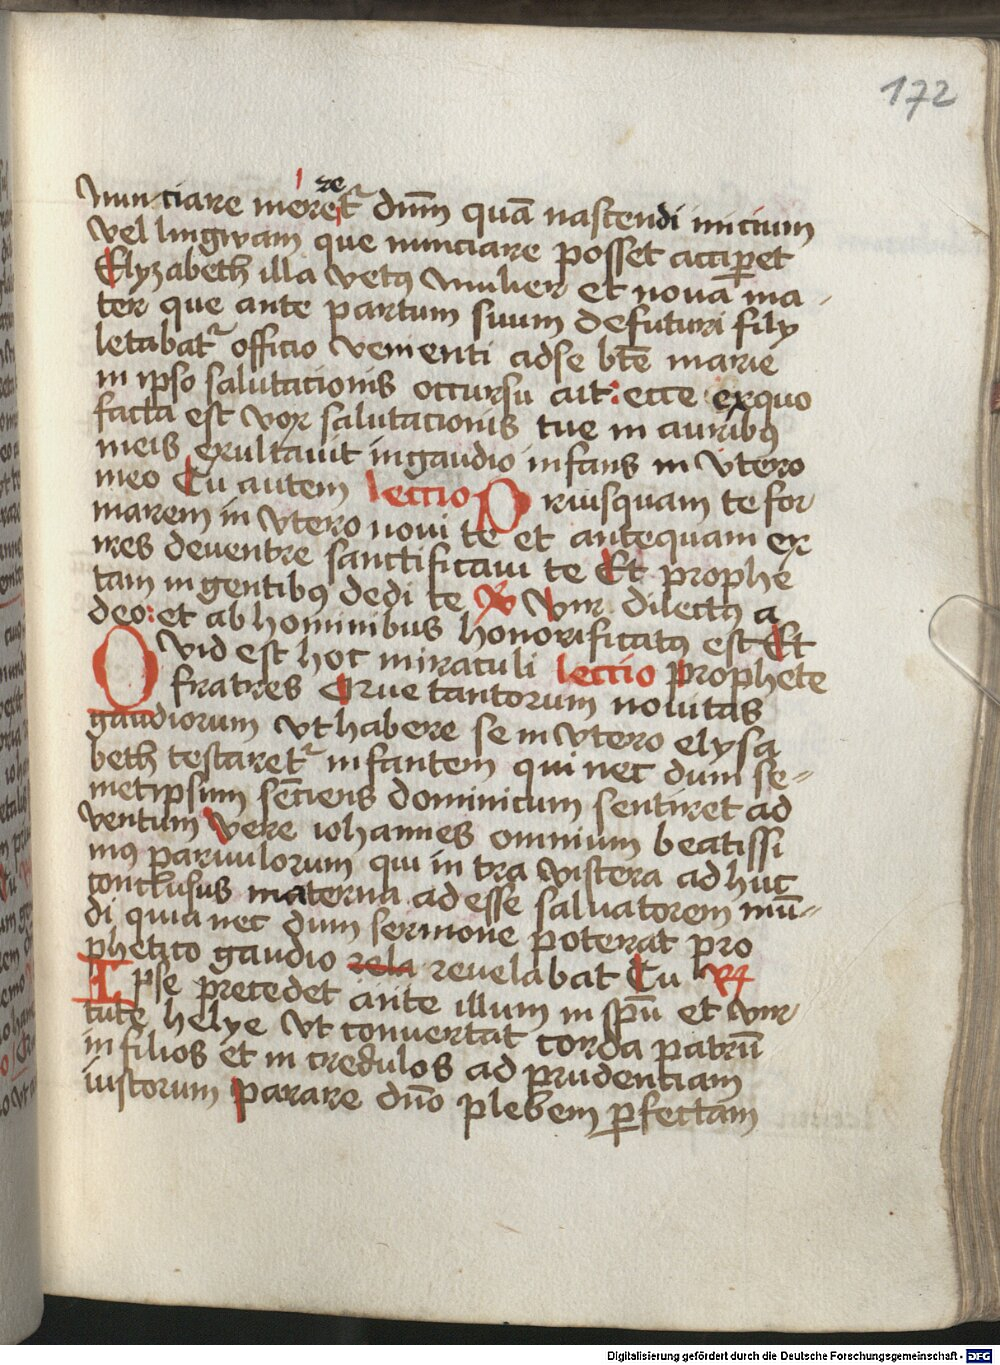 172
nunciare meretr̄ re dnm̄ quā nascendi inicium
vel lingwam que nunciare posset acciꝑet
Elyzabeth illa vetꝰ mulier et noua ma-
ter que ante partum suum defuturi filij
letabatr̄ officio venienti adse bt̄e marie
in ipso salutacionis occursu ait: ecce exquo
facta est vox salutacionis tue in auribꝰ
meis exultauit ingaudio infans in vtero
meo Tu autem lectio Priusquam te for
marem in vtero noui te et antequam ex
ires deventre sanctificaui te Et prophe
tam in gentibꝰ dedi te ℣ Vir dilectꝰ a
deo: et ab hominibus honorificatꝰ est Et
Qvid est hoc miraculi lectio prophete
fratres Crue tantorum nouitas
gaudiorum vt habere se in vtero elysa
beth testaretr̄ infantem qui nec dum se-
metipsum sēciens dominicum sentiret ad
ventum Vere iohannes omnium beatissi
mꝰ paruulorum qui in tra viscera ad huc
conclusus materna adesse saluatorem mū-
di quia nec dum sermone poterat pro
phetico gaudio rela reuelabat Tu ℟
Ipse precedet ante illum in spū et vir
tute helye vt conuertat corda patrū
in filios et in credulos ad prudenciam
iustorum parare dn̄o plebem ꝑfectam
Digitalisierung gefördert durch die Deutsche Forschungsgemeinschaft - DFG